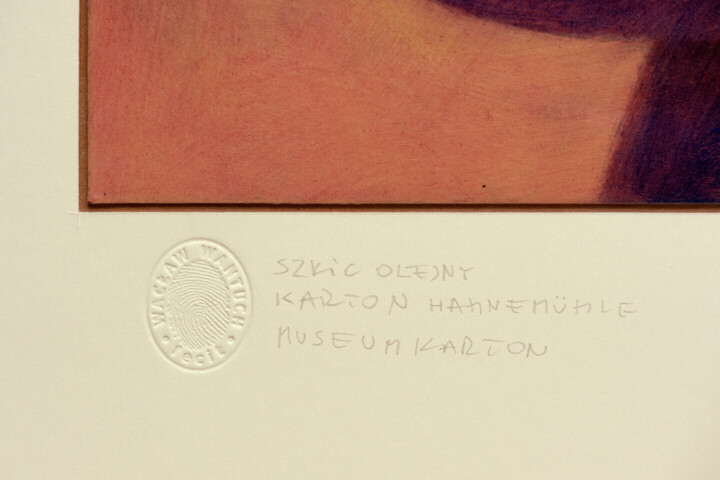 WACŁAW WANTUCH
fecit
SZKIC OLEJNY
KARTON HAHNEMÜHLE
MUSEUM KARTON